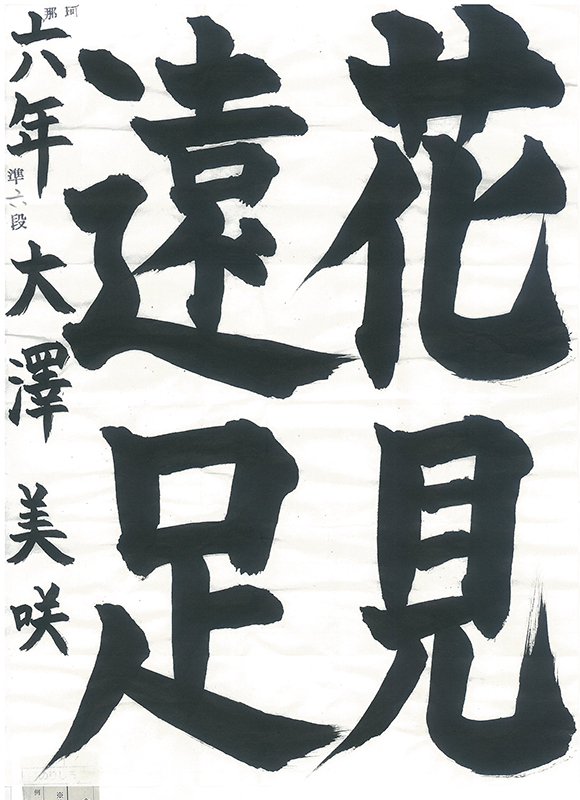 花見
遠足
那珂
六年 準六段 大澤 美咲
例
※